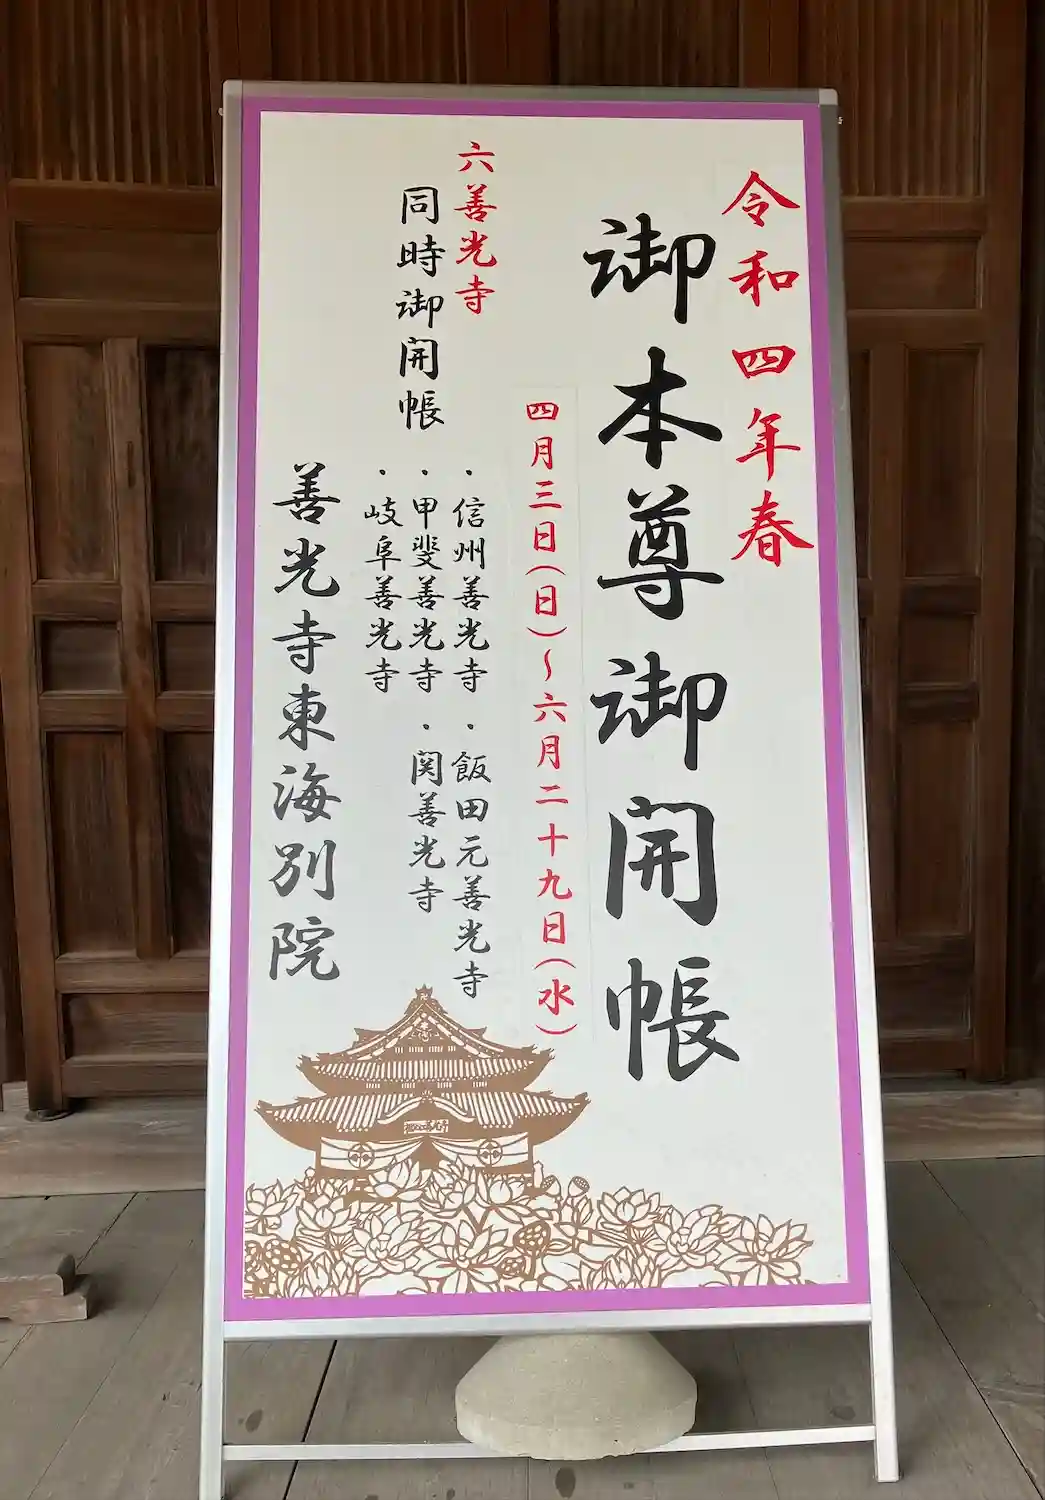 令和四年春
御本尊御開帳
四月三日(日)〜六月二十九日(水)
六善光寺
同時御開帳
・信州善光寺・飯田元善光寺
・甲斐善光寺・関善光寺
・岐阜善光寺
善光寺東海別院